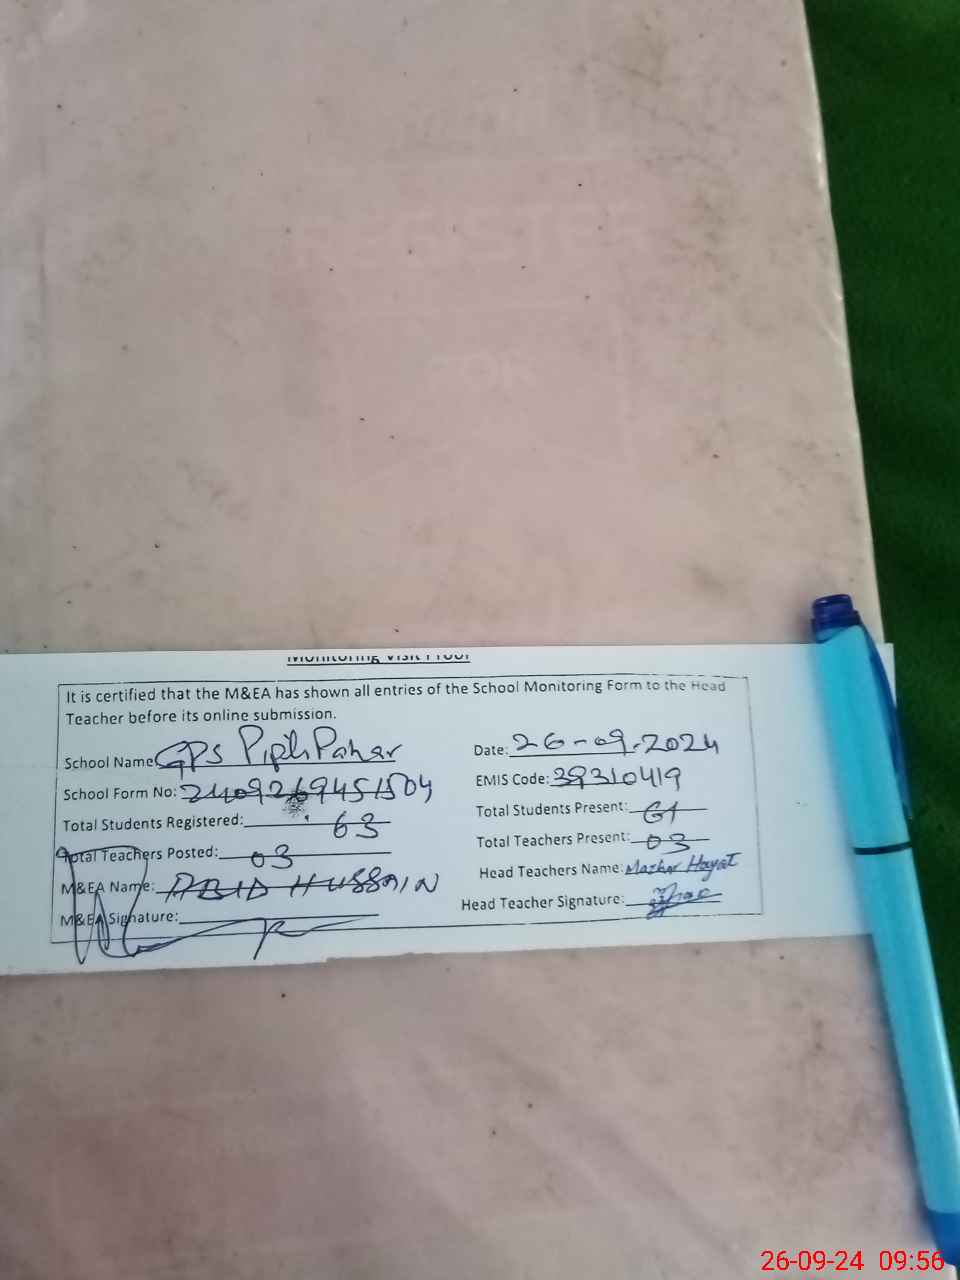 REGISTER
FOR
Monitoring Visit Proof
It is certified that the M&EA has shown all entries of the School Monitoring Form to the Head
Teacher before its online submission.
School Name: GPS Pipli Pahar Date: 26-09-2024
School Form No: 2409269451504 EMIS Code: 39310419
Total Students Registered: 63 Total Students Present: 61
Total Teachers Posted: 03 Total Teachers Present: 03
M&EA Name: ABID HUSSAIN Head Teachers Name: Mazhar Hayat
M&EA Signature: Head Teacher Signature:
26-09-24 09:56